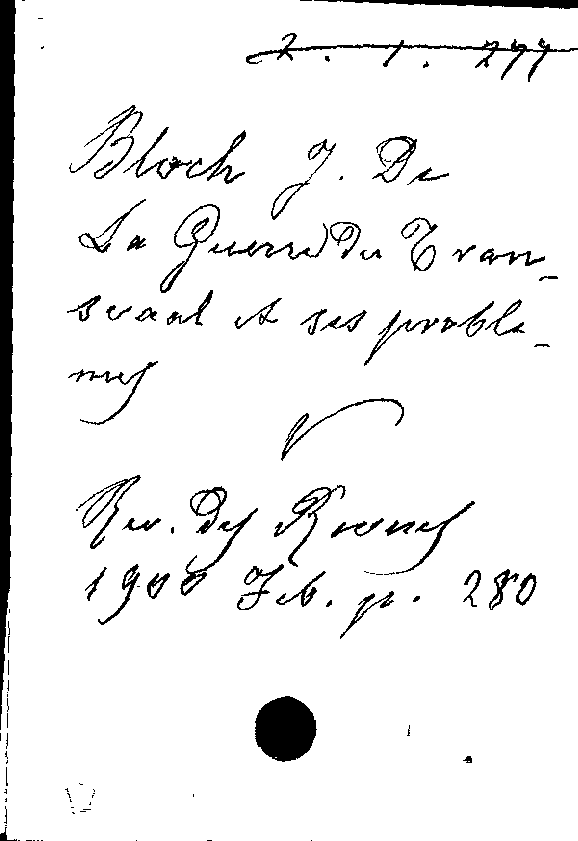 2. 1. 277
Bloch J. De
La Guerre du Tran-
svaal et ses proble-
mes
Rev. des Revues
1900 Feb. p. 280